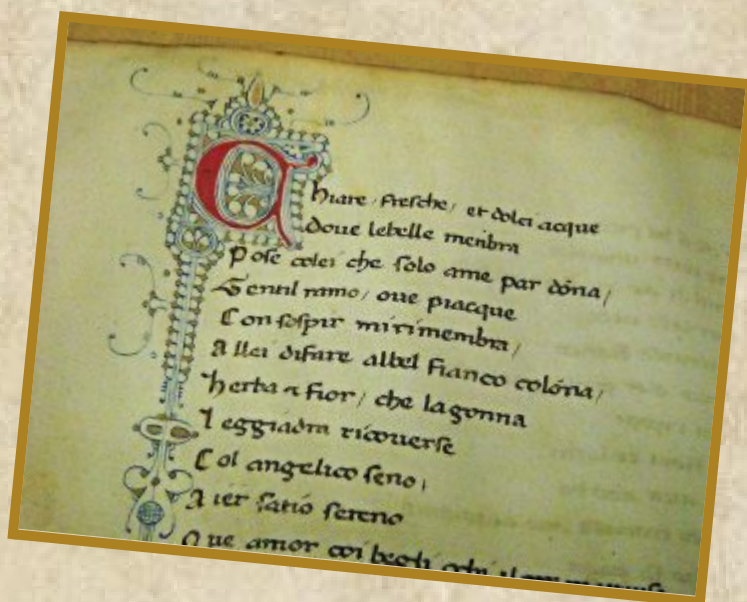 Chiare, fresche, et dolci acque
doue lebelle menbra
Pose colei che solo ame par dóna,
Gentil ramo, oue piacque
Con sospir mirimembra,
Allei difare albel fianco colóna,
herba et fior, che lagonna
Leggiadra ricouerse
Col angelico seno,
Aier sacro sereno
Oue amor coi begli occhi